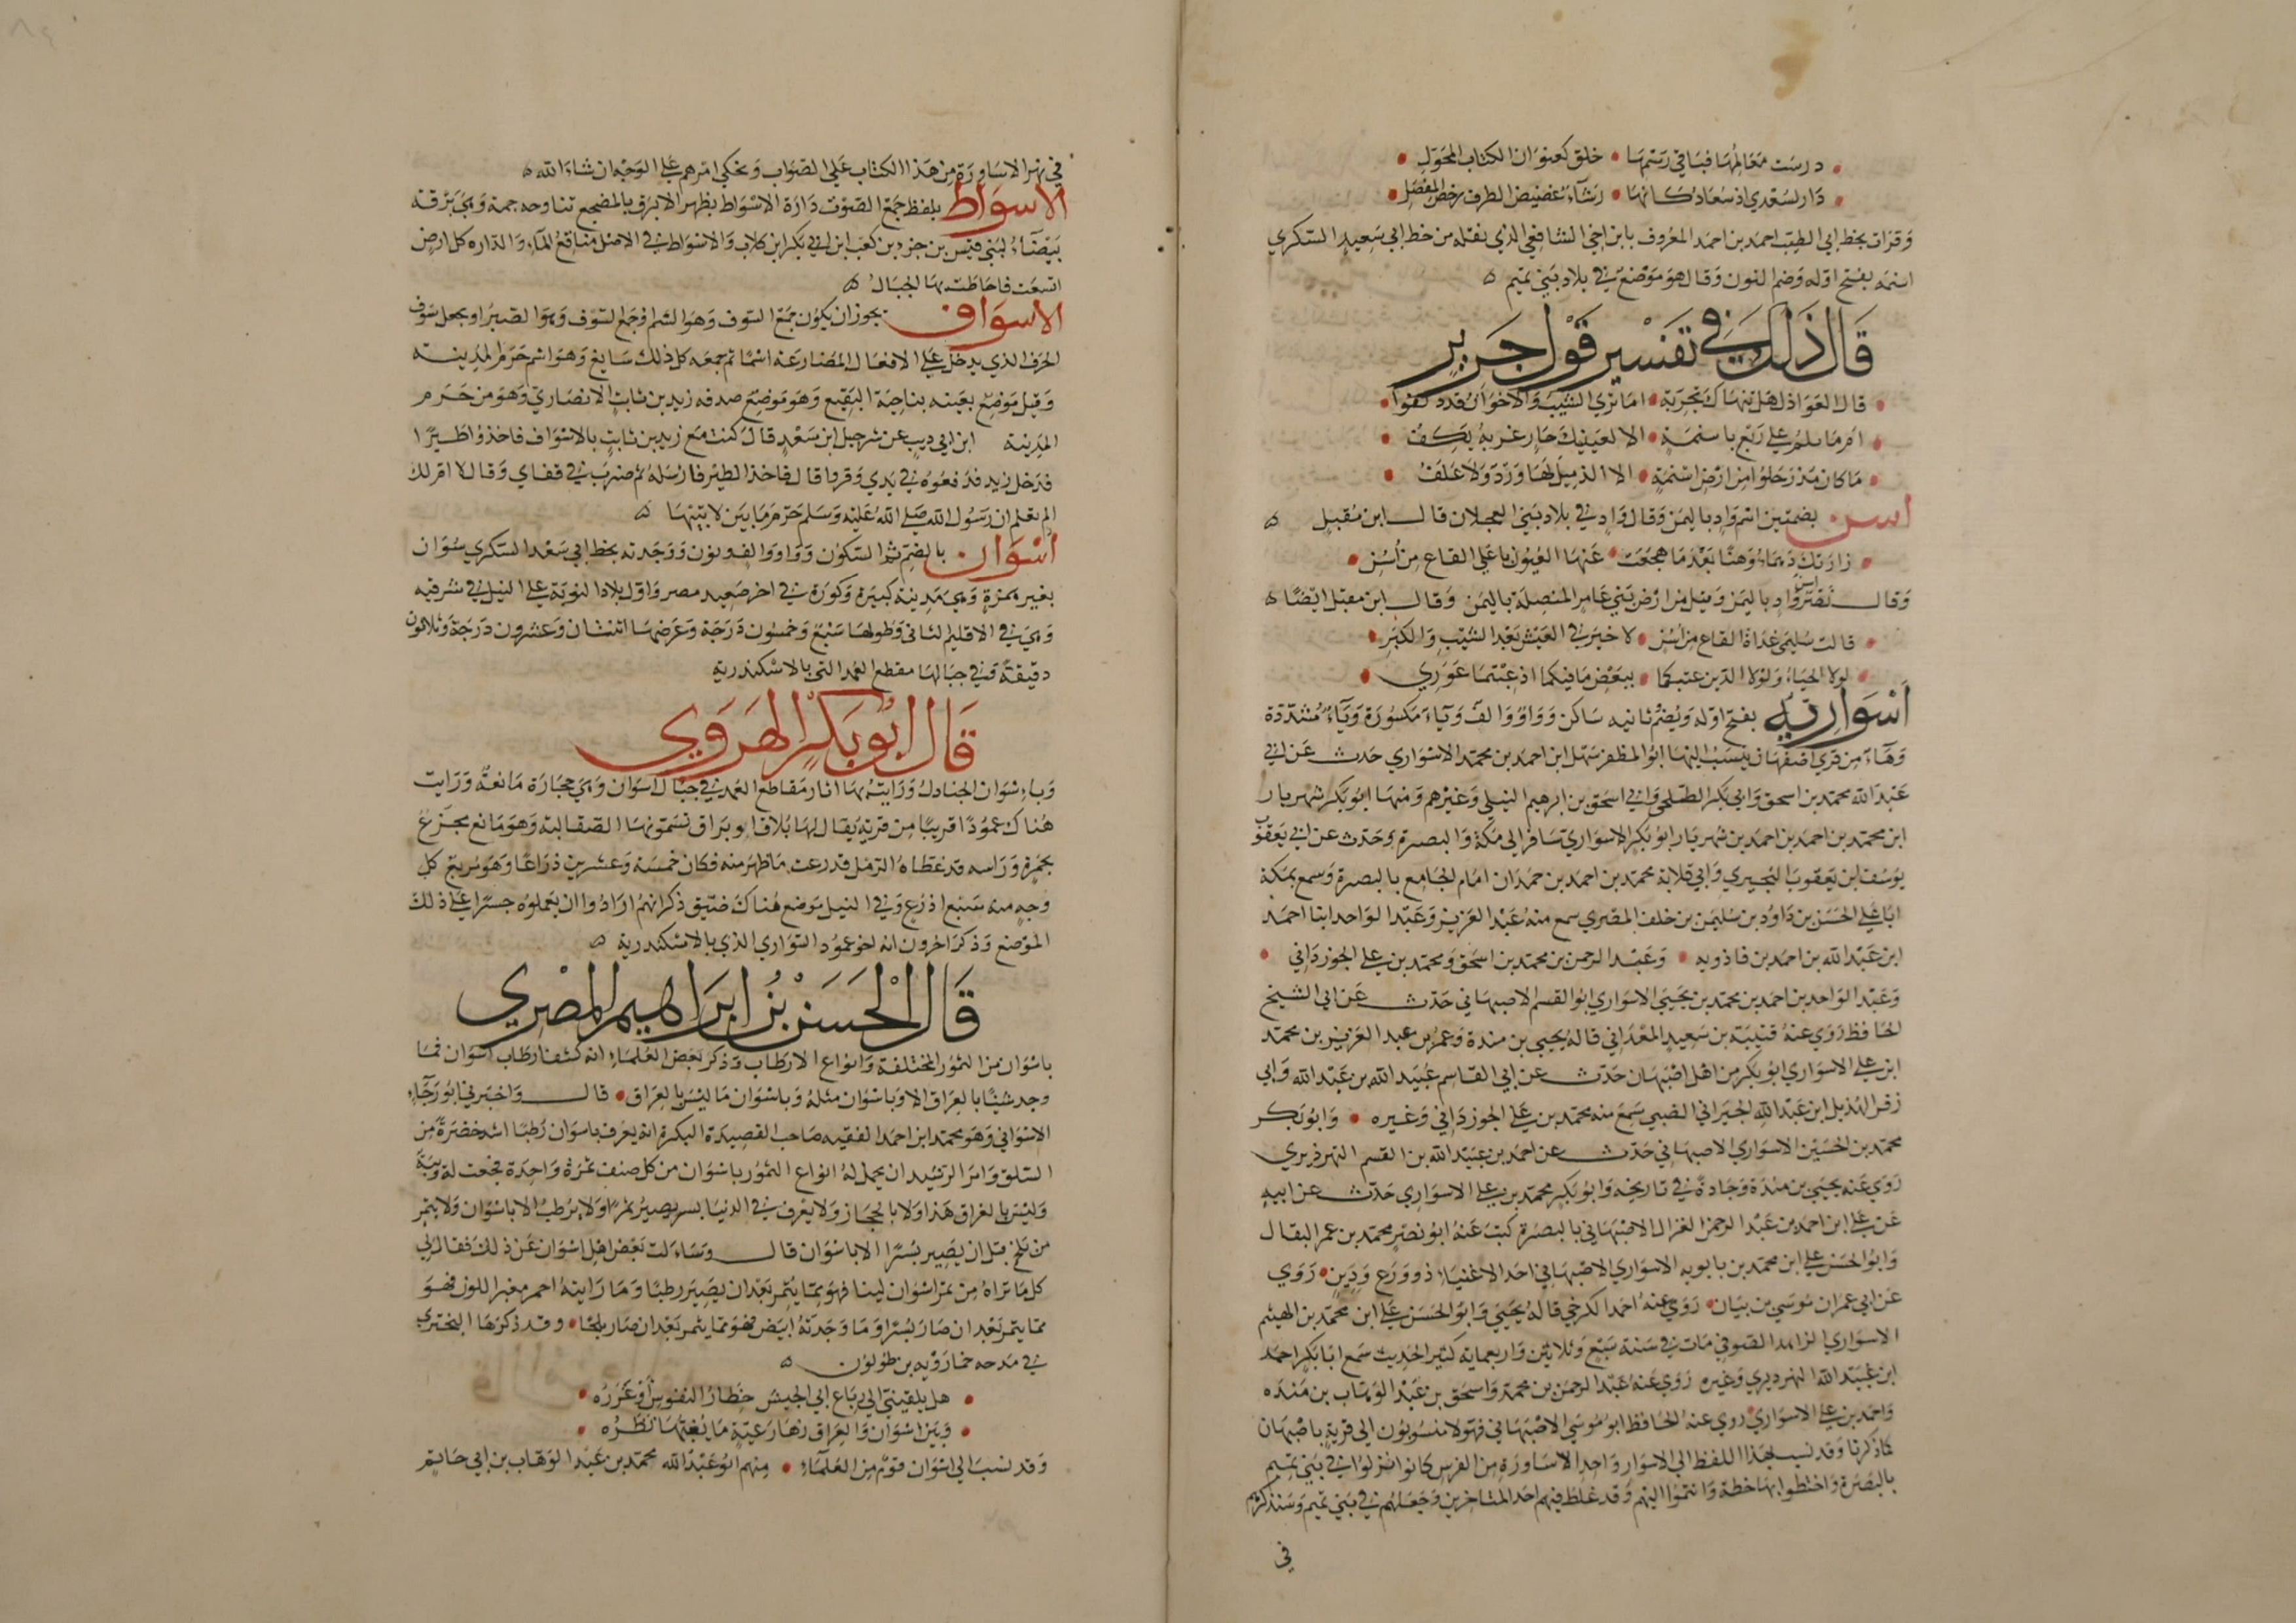 درست معالمها فباقي رسمها • خلق كعنوان الكتاب المحول
دار لسعدي اذ سعاد كانها • رشأ غضيض الطرف رخص المفصل
وقرات بخط ابي الطيب احمد بن احمد المعروف بابن اخي الشافعي الذي نقله من خط ابي سعيد السكري
اسنمه بفتح اوله وضم النون وقال هو موضع في بلاد بني تميم
قال ذلك في تفسير قول جرير
قال العواذل هل تنهاك تجربة • اما تري الشيب والاخوان قد دلفوا
ام ما تلم علي ربع باسنمة • الا لعينيك جار غربه يكف
ما كان مذ رحلوا من ارض اسنمة • الا الذميل لها ورد ولا علف
اسن بضمتين اسم واد باليمن وقال واد في بلاد بني العجلان قال ابن مقبل
زارتك دهماء وهنا بعد ما هجعت • عنها العيون باعلي القاع من اسن
وقال نصر اسن واد باليمن وقيل من ارض بني عامر المتصلة باليمن وقال ابن مقبل ايضا
قالت سليمي غداة القاع من اسن • لا خير في العيش بعد الشيب والكبر
لولا الحياء ولولا الدين عبتكما • ببعض ما فيكما اذ عبتما عوري
اسوارية بفتح اوله ويضم ثانيه ساكن وواو والف وياء مكسورة وياء مشددة
وهاء من قري اصفهان ينسب اليها ابو المظفر سهل ابن احمد بن محمد الاسواري حدث عن ابي
عبد الله محمد بن اسحق وابي بكر الطلحي وابي اسحق بن ابرهيم النيلي وغيرهم ومنها ابو بكر شهريار
ابن محمد بن احمد بن احمد بن شهريار ابو بكر الاسواري سافر الي مكة والبصرة وحدث عن ابي يعقوب
يوسف ابن يعقوب النجيرمي وابي قلابة محمد بن احمد بن حمدان امام الجامع بالبصرة وسمع بمكة
ابا علي الحسن بن داود بن سليمن بن خلف المصري سمع منه عبد العزيز وعبد الواحد ابنا احمد
ابن عبد الله بن احمد بن فاذويه • وعبد الرحمن بن محمد بن اسحق ومحمد بن علي الجوزداني •
وعبد الواحد بن احمد بن محمد بن يحيي الاسواري ابو القسم الاصبهاني حدث عن ابي الشيخ
الحافظ روي عنه قتيبة بن سعيد المعداني قاله يحيي بن مندة وعمر بن عبد العزيز بن محمد
ابن علي الاسواري ابو بكر من اهل اصبهان حدث عن ابي القاسم عبيد الله بن عبد الله وابي
زفر الهذيل ابن عبد الله الجيراني الضبي سمع منه محمد بن علي الجوزداني وغيره • وابو بكر
محمد بن الحسين الاسواري الاصبهاني حدث عن احمد بن عبيد الله بن القسم النهرديري
روي عنه يحيي بن مندة وجادة في تاريخه وابو بكر محمد بن علي الاسواري حدث عن ابيه
عن علي ابن احمد بن عبد الرحمن الغزال الاصبهاني بالبصرة كتب عنه ابو نصر محمد بن عمر البقال
وابو الحسن علي ابن محمد بن بابويه الاسواري الاصبهاني احد الاغنياء ذو ورع ودين • روي
عن ابي عمران موسي بن بيان • روي عنه احمد الكرخي قاله يحيي وابو الحسن علي ابن محمد بن الهيثم
الاسواري الزاهد الصوفي مات في سنة سبع وثلاثين واربعماية كثير الحديث سمع ابا بكر احمد
ابن عبيد الله النهرديري وغيره روي عنه عبد الرحمن بن محمد واسحق بن عبد الوهاب بن منده
واحمد بن علي الاسواري روي عنه الحافظ ابو موسي الاصبهاني فهولا منسوبون الي قرية باصبهان
كما ذكرنا وقد نسب بهذا اللفظ الي الاسوار واحد الاساورة من الفرس كانوا نزلوا في بني تميم
بالبصرة واختطوا بها خطة وانتموا اليهم وقد غلط فيهم احد المتاخرين وجعلهم في بني تميم وسنذكرهم
في
في نهر الاساورة من هذا الكتاب علي الصواب ونحكي امرهم علي الوجه ان شاء الله
الاسواط بلفظ جمع السوط دارة الاسواط بظهر الابرق بالمضجع تناوحه جمة وهي برقة
بيضاء لبني قيس بن جزء بن كعب ابن ابي بكر ابن كلاب والاسواط في الاصل مناقع الماء والداره كل ارض
اتسعت فاحاطت بها الجبال
الاسواف يجوز ان يكون جمع السوف وهو الشم او جمع السوف وهو الصبر او يجعل سوف
الحرف الذي يدخل علي الافعال المضارعة اسما ثم جمعه كل ذلك سايغ وهو اسم حرم المدينة
وقيل موضع بعينه بناحية البقيع وهو موضع صدقه زيد بن ثابت الانصاري وهو من حرم
المدينة ابن ابي ذيب عن شرحبيل ابن سعد قال كنت مع زيد بن ثابت بالاسواف فاخذوا طيرا
فدخل زيد فدفعوه في يدي وفروا قال فاخذ الطير فارسله ثم ضرب في قفاي وقال لا ام لك
الم تعلم ان رسول الله صلي الله عليه وسلم حرم ما بين لابتيها
اسوان بالضم ثم السكون وواو والف ونون ووجدته بخط ابي سعد السكري سوان
بغير همزة وهي مدينة كبيرة وكورة في اخر صعيد مصر واول بلاد النوبة علي النيل في شرقيه
وهي في الاقليم الثاني وطولها سبع وخمسون درجة وعرضها اثنتان وعشرون درجة وثلاثون
دقيقة وفي جبالها مقطع العمد التي بالاسكندرية
قال ابو بكر الهروي
وباسوان الجنادل ورايت بها اثار مقاطع العمد في جبال اسوان وهي حجارة مانعة ورايت
هناك عمودا قريبا من قرية يقال لها بلاق او براق تسمونها الصقالبة وهو مانع مجزع
بحمرة وراسه قد غطاه الرمل فذرعت ما ظهر منه فكان خمسة وعشرين ذراعا وهو مربع كل
وجه منه سبع اذرع وفي النيل موضع هناك ضيق ذكر انهم ارادوا ان يعملوه جسرا علي ذلك
الموضع وذكر اخرون انه اخو عمود السواري الذي بالاسكندرية
قال الحسن بن ابراهيم المصري
باسوان من التمور المختلفة وانواع الارطاب وذكر بعض العلماء انه كشف ارطاب اسوان فما
وجد شيئا بالعراق الا وباسوان مثله وباسوان ما ليس بالعراق • قال واخبرني ابو رجاء
الاسواني وهو محمد ابن احمد الفقيه صاحب القصيدة البكرة انه يعرف باسوان رطبا اشد خضرة من
السلق وامر الرشيد ان يحمل له انواع التمور باسوان من كل صنف تمرة واحدة فجمعت له ويبة
وليس بالعراق هذا ولا بالحجاز ولا يعرف في الدنيا بسر يصير تمرا ولا يرطب الا باسوان ولا يتمر
من بلح قبل ان يصير بسرا الا باسوان قال وساءلت بعض اهل اسوان عن ذلك فقال لي
كل ما تراه من تمر اسوان لينا فهو مما يتمر بعد ان يصير رطبا وما رايته احمر مغبر اللون فهو
مما يتمر بعد ان صار بسرا وما وجدته ابيض فهو مما يتمر بعد ان صار بلحا • وقد ذكرها البحتري
في مدحه خمارويه بن طولون
هل يلقيني الي رباع ابي الجيش خطار النفوس او غرره
وبين اسوان والعراق زها رعية ما يغبها نظره
وقد نسب الي اسوان قوم من العلماء • منهم ابو عبد الله محمد بن عبد الوهاب بن ابي حاتم